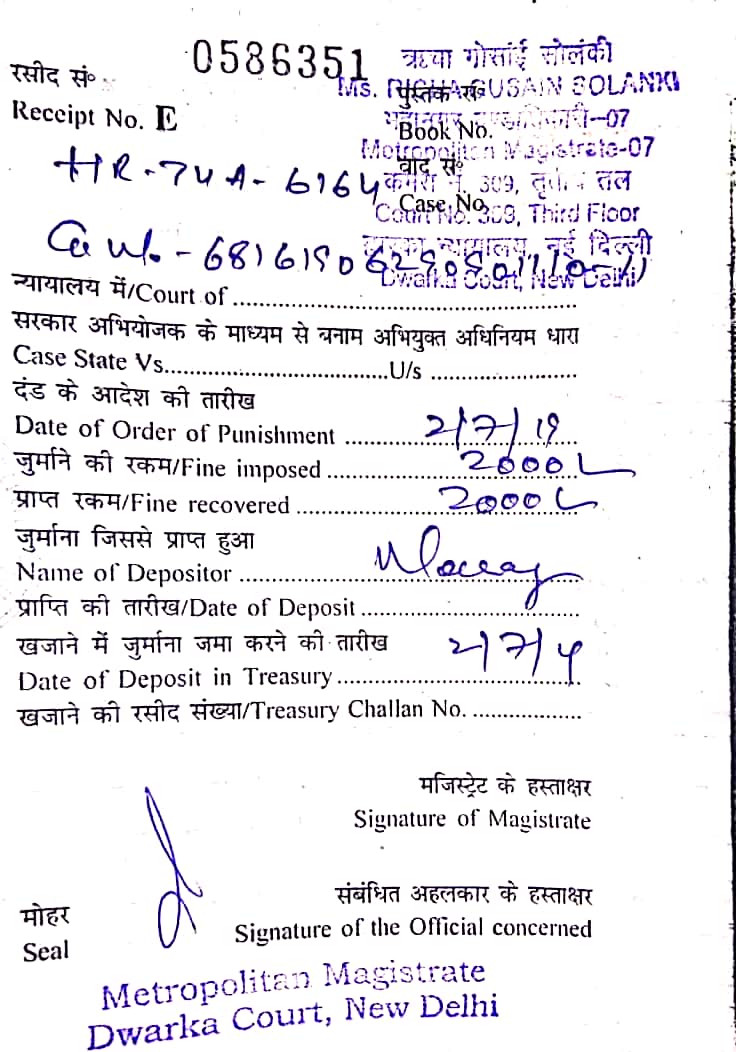 0586351
रसीद सं॰
Receipt No. E
ऋचा गोसांई सोलंकी
Ms. RICHA GUSAIN SOLANKI
पुस्तक सं॰
महानगर दण्डाधिकारी–07
Book No.
Metropolitan Magistrate-07
वाद सं॰
कमरा नं. 309, तृतीय तल
Case No.
Court No. 309, Third Floor
द्वारका न्यायालय, नई दिल्ली
Dwarka Court, New Delhi
HR-74A-6164
न्यायालय में/Court of
सरकार अभियोजक के माध्यम से बनाम अभियुक्त अधिनियम धारा
Case State Vs. U/s
दंड के आदेश की तारीख
Date of Order of Punishment 2/7/19
जुर्माने की रकम/Fine imposed 2000
प्राप्त रकम/Fine recovered 2000
जुर्माना जिससे प्राप्त हुआ
Name of Depositor
प्राप्ति की तारीख/Date of Deposit
खजाने में जुर्माना जमा करने की तारीख
Date of Deposit in Treasury 2/7/
खजाने की रसीद संख्या/Treasury Challan No.
मजिस्ट्रेट के हस्ताक्षर
Signature of Magistrate
संबंधित अहलकार के हस्ताक्षर
Signature of the Official concerned
मोहर
Seal
Metropolitan Magistrate
Dwarka Court, New Delhi